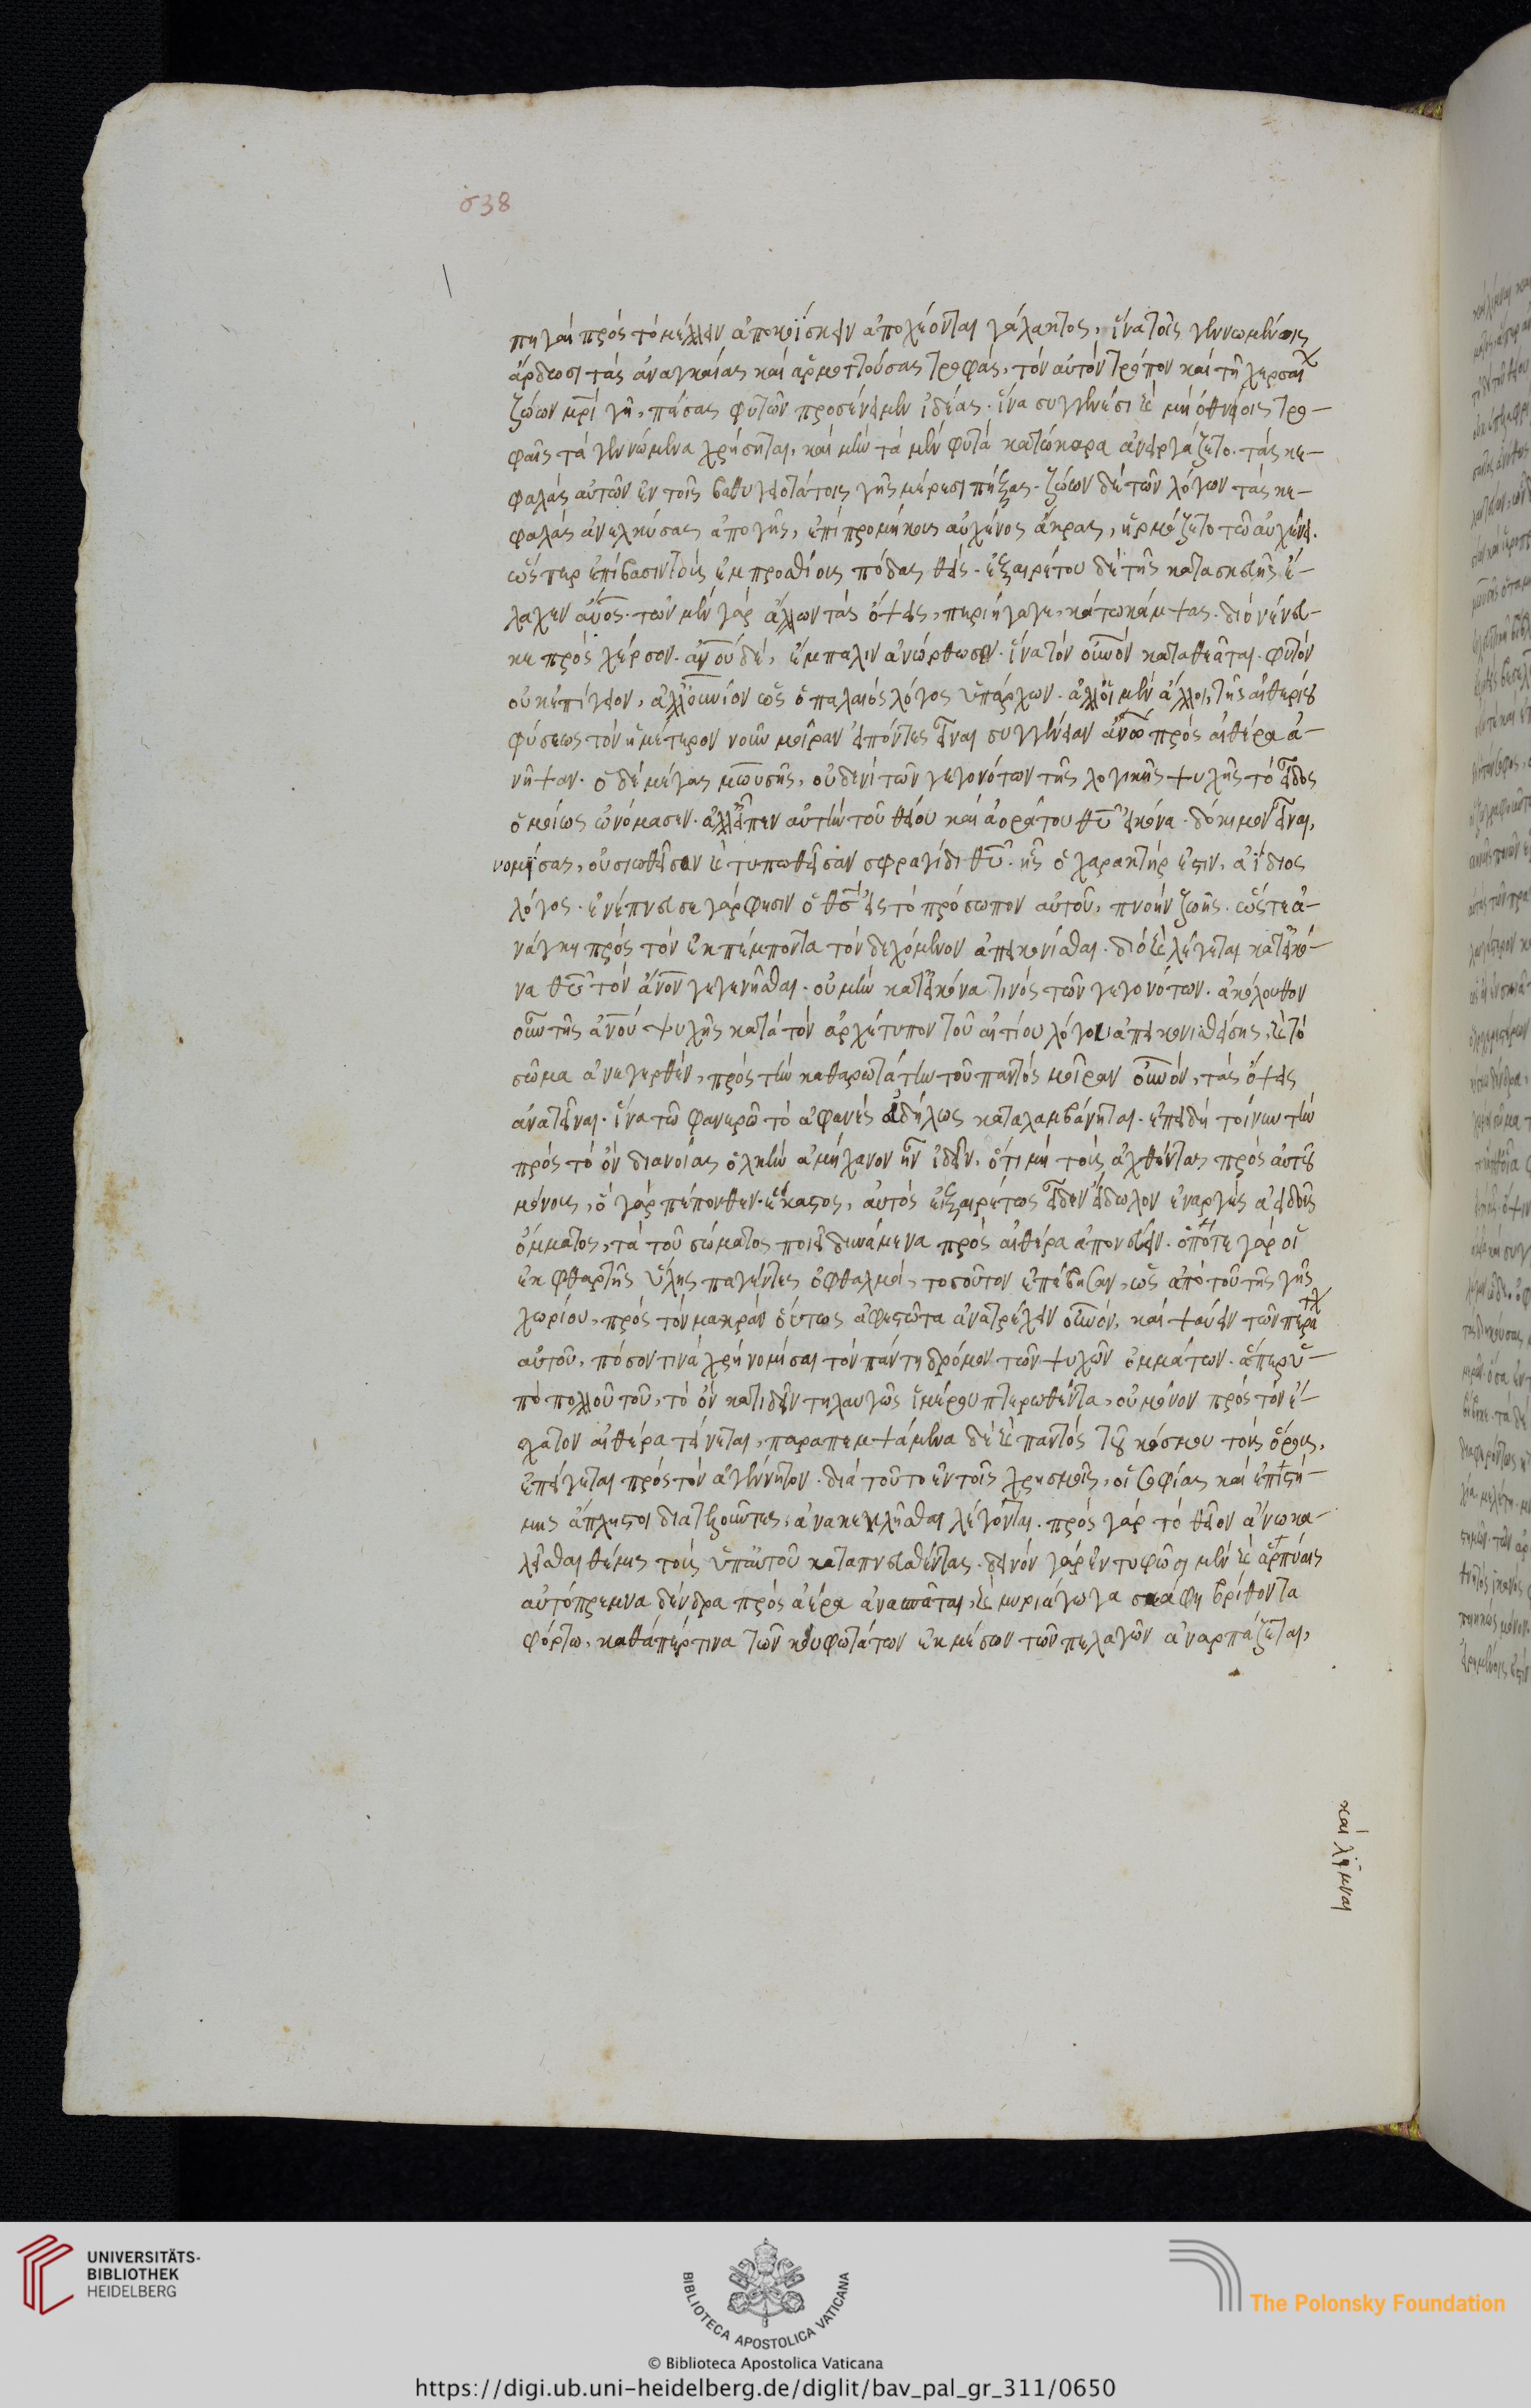 σ38
πηγαὶ πρὸς τὸ μέλλειν ἀποκυΐσκειν ἀποχέονται γάλακτος, ἵνα τοῖς γεννωμένοις
ἄρδωσι τὰς ἀναγκαίας καὶ ἁρμοττούσας τροφάς, τὸν αὐτὸν τρόπον καὶ τῇ χερσαί
ζώων μρὶ γῇ, πάσας φυτῶν προσένειμεν ἰδέας. ἵνα συγγενέσι καὶ μὴ ὀθνείοις τρο-
φαῖς τὰ γεννώμενα χρήσηται, καὶ μὴν τὰ μὲν φυτὰ κατωκάρα ἀπειργάζετο. τὰς κε-
φαλὰς αὐτῶν ἐν τοῖς βαθυγειοτάτοις γῆς μέρεσι πήξας. ζώων δὲ τῶν λόγων τὰς κε-
φαλὰς ἀνελκύσας ἀπὸ γῆς, ἐπὶ προμήκους αὐχένος ἄκρας, ἡρμόζετο τῷ αὐχένι.
ὥσπερ ἐπίβασιν τοὺς ἐμπροσθίους πόδας θείς. ἐξαιρέτου δὲ τῆς κατασκευῆς ἔ-
λαχεν ἄνος. τῶν μὲν γὰρ ἄλλων τὰς ὄψεις, περιήγαγε, κάτω κάμψας. διὸ νένευ-
κε πρὸς χέρσον. ἀνου δὲ, ἔμπαλιν ἀνώρθωσεν. ἵνα τὸν οὐνὸν καταθεᾶται. φυτὸν
οὐκ ἐπίγειον, ἀλλ' οὐνιον ὡς ὁ παλαιὸς λόγος ὑπάρχων. ἀλλ' οἱ μὲν ἄλλοι, τῆς αἰθερίου
φύσεως τὸν ἡμέτερον νοῦν μοῖραν εἰπόντες εἶναι συγγένειαν ἀνω πρὸς αἰθέρα ἀ-
νῆψαν. ὁ δὲ μέγας μωυσῆς, οὐδενὶ τῶν γεγονότων τῆς λογικῆς ψυχῆς τὸ εἶδος
ὁμοίως ὠνόμασεν. ἀλλ' εἶπεν αὐτὴν τοῦ θείου καὶ ἀοράτου θυ εἰκόνα. δόκιμον εἶναι,
νομίσας, οὐσιωθεῖσαν καὶ τυπωθεῖσαν σφραγίδι θυ. ἧς ὁ χαρακτήρ ἐστιν, ἀΐδιος
λόγος. ἐνέπνευσε γάρ φησιν ὁ θσ εἰς τὸ πρόσωπον αὐτοῦ, πνοὴν ζωῆς. ὥστε ἀ-
νάγκη πρὸς τὸν ἐκπέμποντα τὸν δεχόμενον ἀπεικονίσθαι. διὸ καὶ λέγεται κατ' εἰκό-
να θυ τὸν ἄνον γεγενῆσθαι. οὐ μὴν κατ' εἰκόνα τινὸς τῶν γεγονότων. ἀκόλουθον
οὖν τῆς ἀνου ψυχῆς κατὰ τὸν ἀρχέτυπον τοῦ αἰτίου λόγου ἀπεικονισθείσης, καὶ τὸ
σῶμα ἀνεγερθὲν, πρὸς τὴν καθαρωτάτην τοῦ παντὸς μοῖραν οὐνὸν, τὰς ὄψεις
ἀνατεῖναι. ἵνα τῷ φανερῷ τὸ ἀφανὲς ἀδήλως καταλαμβάνηται. ἐπειδὴ τοίνυν τὴν
πρὸς τὸ ὂν διανοίας ὁλκὴν ἀμήχανον ἦν ἰδεῖν, ὅτι μὴ τοὺς ἀχθέντας πρὸς αὐτοῦ
μόνους, ὃ γὰρ πέπονθεν ἕκαστος, αὐτὸς ἐξαιρέτως εἶδεν εἴδωλον ἐναργὲς ἀειδοῦς
ὄμματος, τὰ τοῦ σώματος ποιεῖ δυνάμενα πρὸς αἰθέρα ἀπονεύειν. ὁπότε γὰρ οἱ
ἐκ φθαρτῆς ὕλης παγέντες ὀφθαλμοί, τοσοῦτον ἐπέβησαν, ὡς ἀπὸ τοῦ τῆς γῆς
χωρίου, πρὸς τὸν μακρὰν οὕτως ἀφεστῶτα ἀνατρέχειν οὐνόν, καὶ ψαύειν τῶν περά
αὐτοῦ, πόσον τινὰ χρὴ νομίσαι τὸν πάντη δρόμον τῶν ψυχῶν ὀμμάτων. ἅπερ ὑ-
πὸ πολλοῦ τοῦ, τὸ ὂν κατιδεῖν τηλαυγῶς ἱμέρου πτερωθέντα, οὐ μόνον πρὸς τὸν ἔ-
σχατον αἰθέρα τείνεται, παραπεμψάμενα δὲ καὶ παντὸς τοῦ κόσμου τοὺς ὅρους,
ἐπείγεται πρὸς τὸν ἀγέννητον. διὰ τοῦτο ἐν τοῖς χρησμοῖς, οἱ σοφίας καὶ ἐπιστή-
μης ἄπληστοι διατελοῦντες, ἀνακεκλῆσθαι λέγονται. πρὸς γὰρ τὸ θεῖον ἄνω κα-
λεῖσθαι θέμις τοὺς ὑπ' αὐτοῦ καταπνευσθέντας. δεινὸν γὰρ ἐν τυφῶσι μὲν καὶ ἁρπύαις
αὐτόπρεμνα δένδρα πρὸς ἀέρα ἀνασπᾶται, καὶ μυριάγωγα σκάφη βρίθοντα
φόρτω, καθάπέρ τινα τῶν κουφοτάτων ἐκ μέσων τῶν πελαγῶν ἀναρπάζεται,
καὶ λῆμναι
UNIVERSITÄTS-
BIBLIOTHEK
HEIDELBERG
BIBLIOTECA APOSTOLICA VATICANA
The Polonsky Foundation
© Biblioteca Apostolica Vaticana
https://digi.ub.uni-heidelberg.de/diglit/bav_pal_gr_311/0650